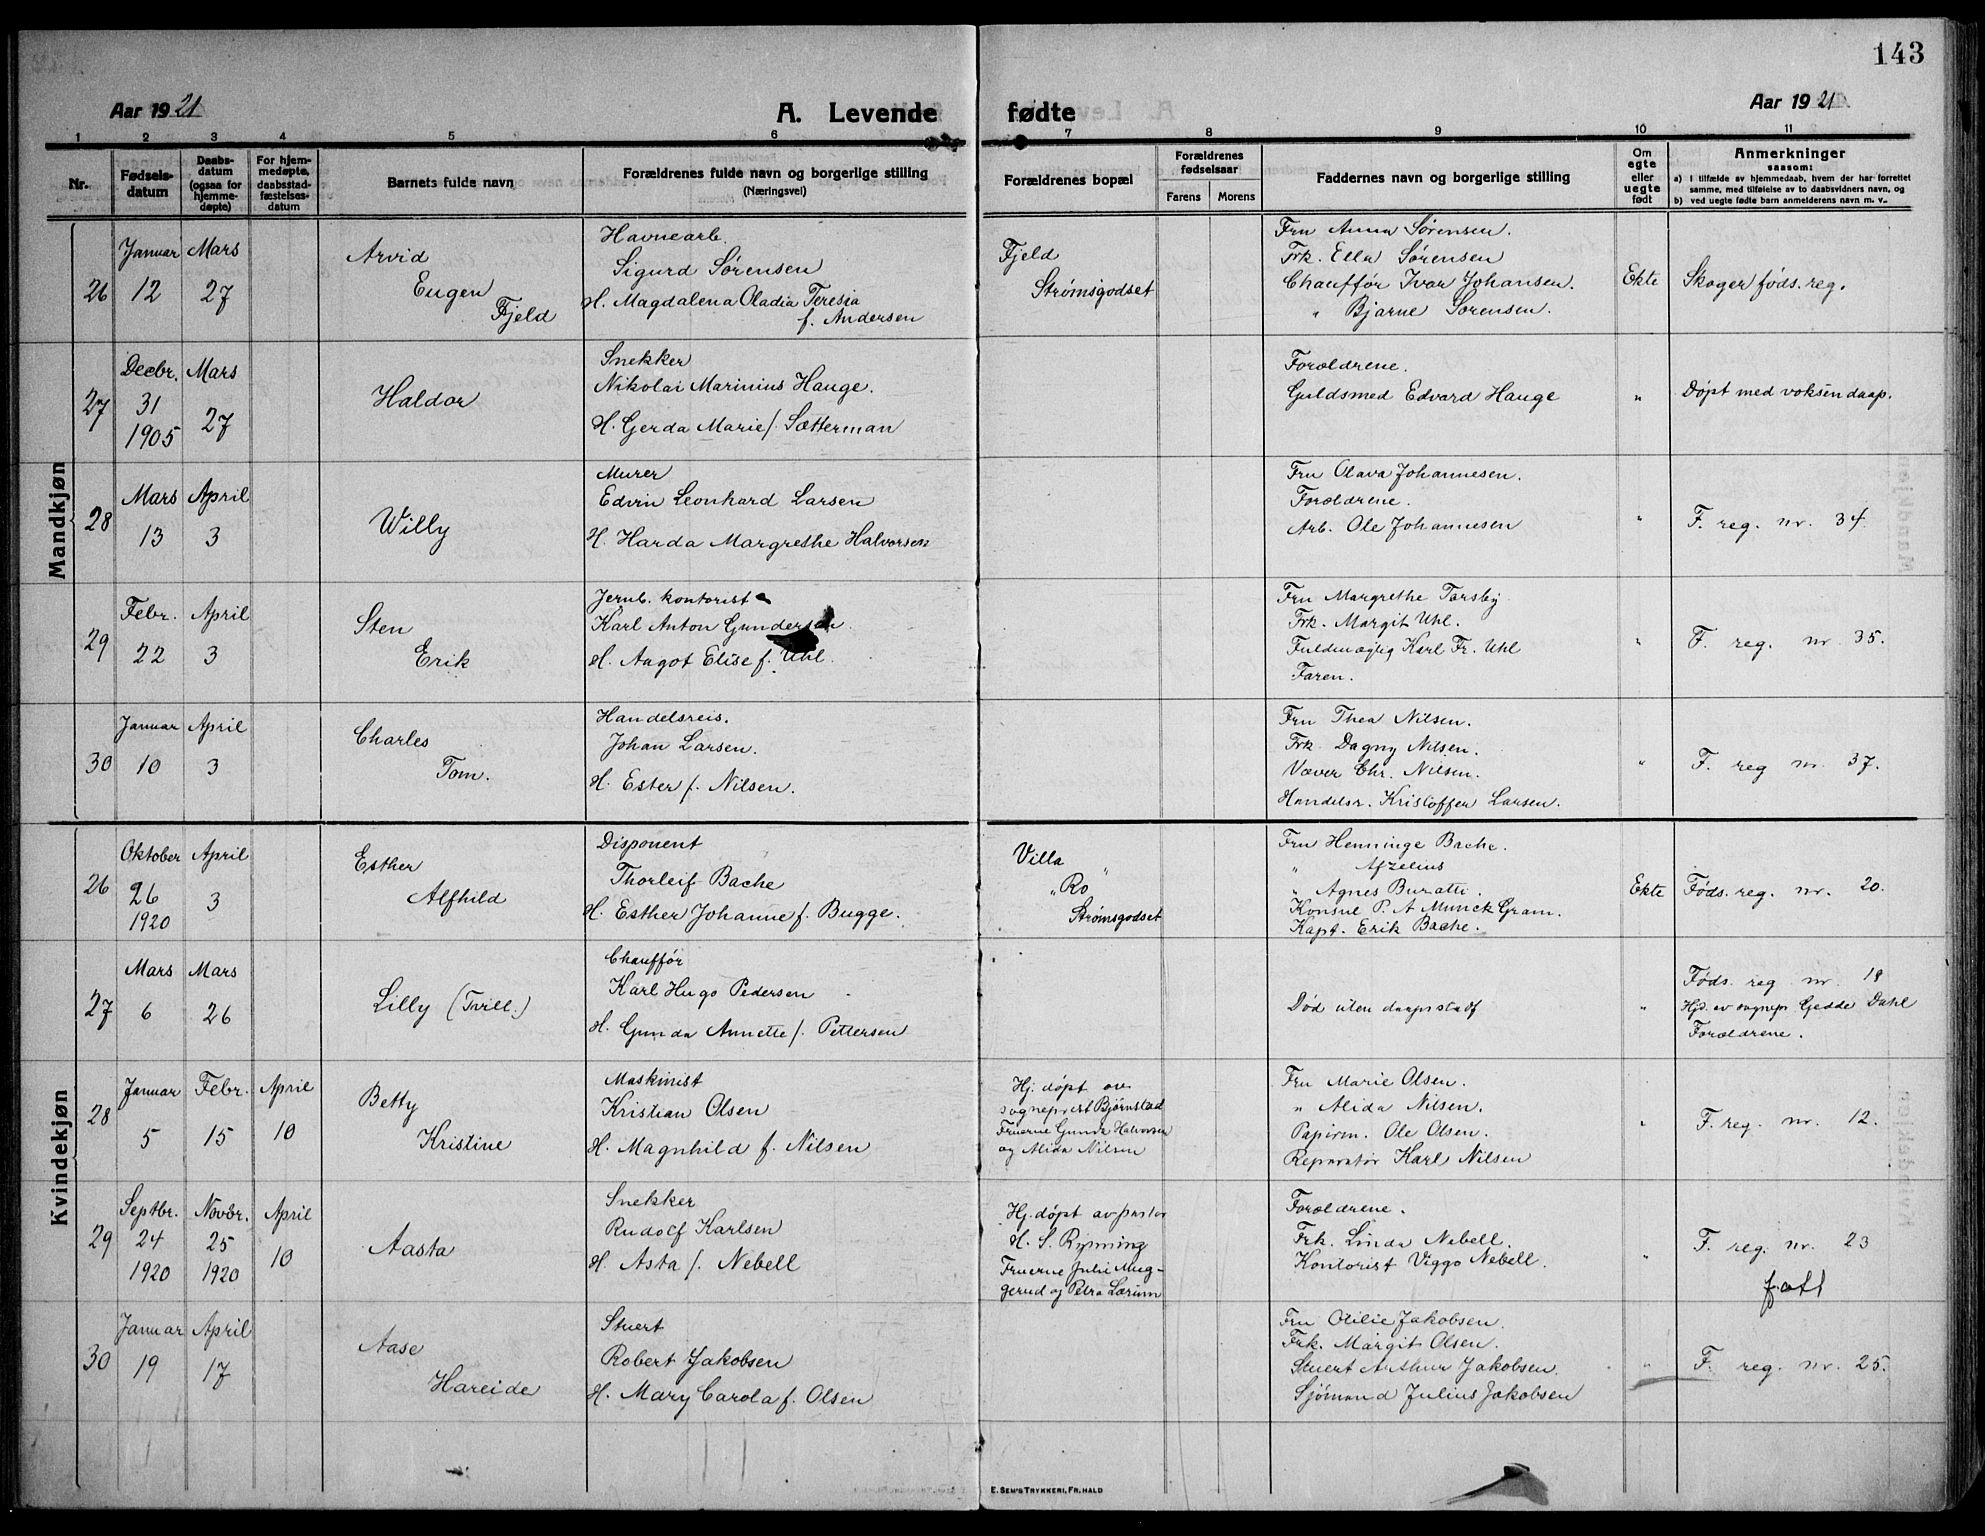 143
Aar 1921
A. Levende fødte
Aar 1921
1 2 3 4 5 6 7 8 9 10 11
Nr.
Fødsels-
datum
Daabs-
datum
(ogsaa for
hjemme-
døpte)
For hjem-
medøpte,
daabsstad-
fæstelses-
datum
Barnets fulde navn
Forældrenes fulde navn og borgerlige stilling
(Næringsvei)
Forældrenes bopæl
Forældrenes
fødselsaar
Farens Morens
Faddernes navn og borgerlige stilling
Om
egte
eller
uegte
født
Anmerkninger
saasom:
a) I tilfælde av hjemmedaab, hvem der har forrettet
samme, med tilføielse av to daabsvidners navn, og
b) ved uegte fødte barn anmelderens navn m. v.
Mandkjøn
26
Januar
12
Mars
27
Arvid
Eugen
Fjeld
Havnearb.
Sigurd Sørensen
H. Magdalena Oladia Teresia
f. Andersen
Fjeld
Strømsgodset
Fru Anna Sørensen.
Frk. Ella Sørensen
Chauffør Ivar Johansen.
" Bjarne Sørensen.
Ekte
Skoger føds. reg.
27
Decbr.
31
1905
Mars
27
Haldor
Snekker
Nikolai Marinius Hauge.
H. Gerda Marie f. Sætterman
Forældrene.
Guldsmed Edvard Hauge
"
Døpt med voksendaap.
28
Mars
13
April
3
Willy
Murer
Edvin Leonhard Larsen
H. Harda Margrethe Halvorsen
Fru Olava Johannesen.
Forældrene.
Arb. Ole Johannesen
"
F. reg. nr. 34.
29
Febr.
22
April
3
Sten
Erik
Jernb. kontorist
Karl Anton Gundersen.
H. Aagot Elise f. Uhl.
Fru Margrethe Torsby.
Frk. Margit Uhl.
Fuldmægtig Karl Fr. Uhl
Faren.
"
F. reg. nr 35.
30
Januar
10
April
3
Charles
Tom.
Handelsreis.
Johan Larsen.
H. Ester f. Nilsen.
Fru Thea Nilsen.
Frk. Dagny Nilsen.
Væver Chr. Nilsen.
Handelsr. Kristoffer Larsen.
"
F. reg nr. 37.
Kvindekjøn
26
Oktober
26
1920
April
3
Esther
Alfhild
Disponent
Thorleif Bache
H. Esther Johanne f. Bugge.
Villa
"Ro"
Strømsgodset
Fru Henninge Bache.
" Afzelius
" Agnes Buratti.
Konsul P. A Munck Gram.
Kapt. Erik Bache.
Ekte
Føds. reg. nr. 20.
27
Mars
6
Mars
26
Lilly (Tvill.)
Chauffør
Karl Hugo Pedersen
H. Gunda Annette f. Pettersen
Død uten daapsstadf
"
Føds. reg nr. 18
Hjd. av sognepr. Gedde Dahl
Forældrene.
28
Januar
5
Febr.
15
April
10
Betty
Kristine
Maskinist
Kristian Olsen
H. Magnhild f. Nilsen
Hj. døpt av
sogneprest Bjørnstad
Fruerne Gunda Halvorsen
og Alida Nilsen
Fru Marie Olsen.
" Alida Nilsen.
Papirm. Ole Olsen.
Reparatør Karl Nilsen
"
F. reg. nr. 12.
29
Septbr.
24
1920
Novbr.
25
1920
April
10
Aasta
Snekker
Rudolf Karlsen
H. Asta f. Nebell
Hj. døpt av pastor
H. S. Rynning
Fruerne Julie Mug-
gerud og Petra Lærum
Forældrene.
Frk. Linda Nebell.
Kontorist Viggo Nebell.
"
F. reg. nr. 23
30
Januar
19
April
17
Aase
Hareide
Stuert
Robert Jakobsen
H. Mary Carola f. Olsen
Fru Otilie Jakobsen.
Frk. Margit Olsen.
Stuert Arthur Jakobsen.
Sjømand Julius Jakobsen
"
F. reg. nr. 25.
E. SEM'S TRYKKERI, FR.HALD